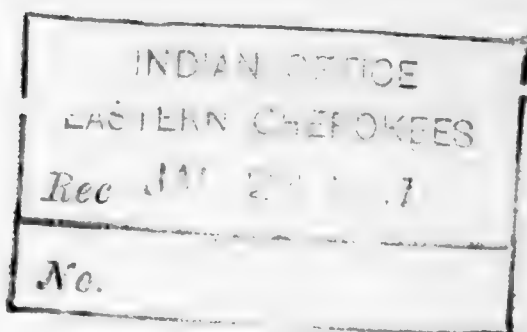 INDIAN OFFICE
EASTERN CHEROKEES
Rec
No.